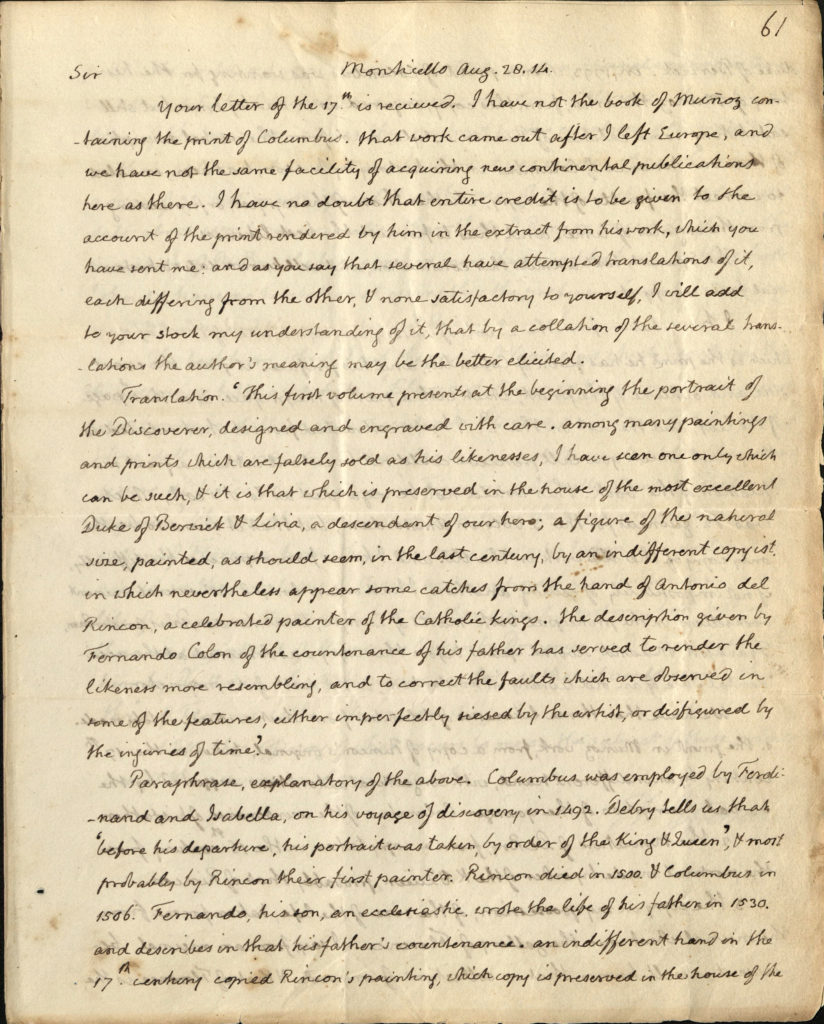 61
Sir Monticello Aug. 28. 14.
Your letter of the 17th. is recieved. I have not the book of Muñoz con-
-taining the print of Columbus. that work came out after I left Europe, and
we have not the same facility of acquiring new continental publications
here as there. I have no doubt that entire credit is to be given to the
account of the print rendered by him in the extract from his work, which you
have sent me: and as you say that several have attempted translations of it,
each differing from the other, & none satisfactory to yourself, I will add
to your stock my understanding of it, that by a collation of the several trans-
-lations the author's meaning may be the better elicited.
Translation. 'This first volume presents at the beginning the portrait of
the Discoverer, designed and engraved with care. among many paintings
and prints which are falsely sold as his likenesses, I have seen one only which
can be such, & it is that which is preserved in the house of the most excellent
Duke of Berwick & Liria, a descendant of our hero; a figure of the natural
size, painted, as should seem, in the last century, by an indifferent copyist,
in which nevertheless appear some catches from the hand of Antonio del
Rincon, a celebrated painter of the Catholic kings. the description given by
Fernando Colon of the countenance of his father has served to render the
likeness more resembling, and to correct the faults which are observed in
some of the features, either imperfectly siesed by the artist, or disfigured by
the injuries of time.'
Paraphrase, explanatory of the above. Columbus was employed by Ferdi-
-nand and Isabella, on his voyage of discovery in 1492. Debry tells us that
'before his departure, his portrait was taken by order of the King & Queen', & most
probably by Rincon their first painter. Rincon died in 1500. & Columbus in
1506. Fernando, his son, an ecclesiastic, wrote the life of his father in 1530.
and describes in that his father's countenance. an indifferent hand in the
17th. century copied Rincon's painting, which copy is preserved in the house of the